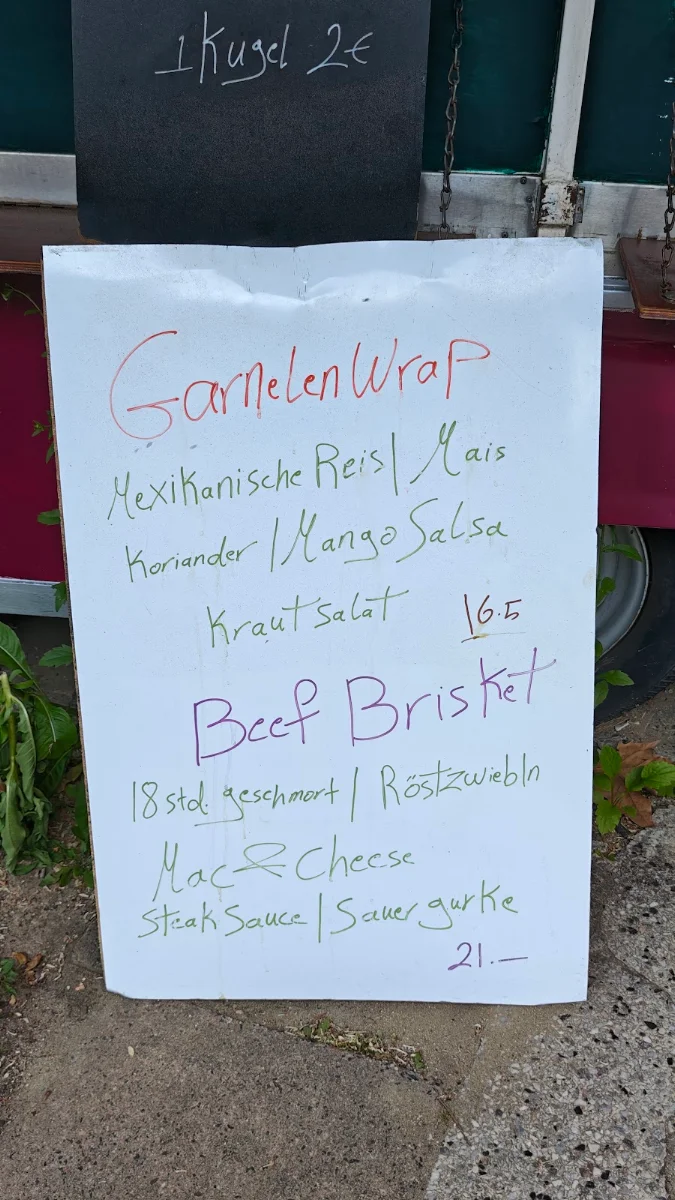 1 Kugel 2€
Garnelen Wrap
Mexikanische Reis | Mais
Koriander | Mango Salsa
Krautsalat 16.5
Beef Brisket
18 std. geschmort | Röstzwiebln
Mac & Cheese
Steak Sauce | Sauer gurke
21.—